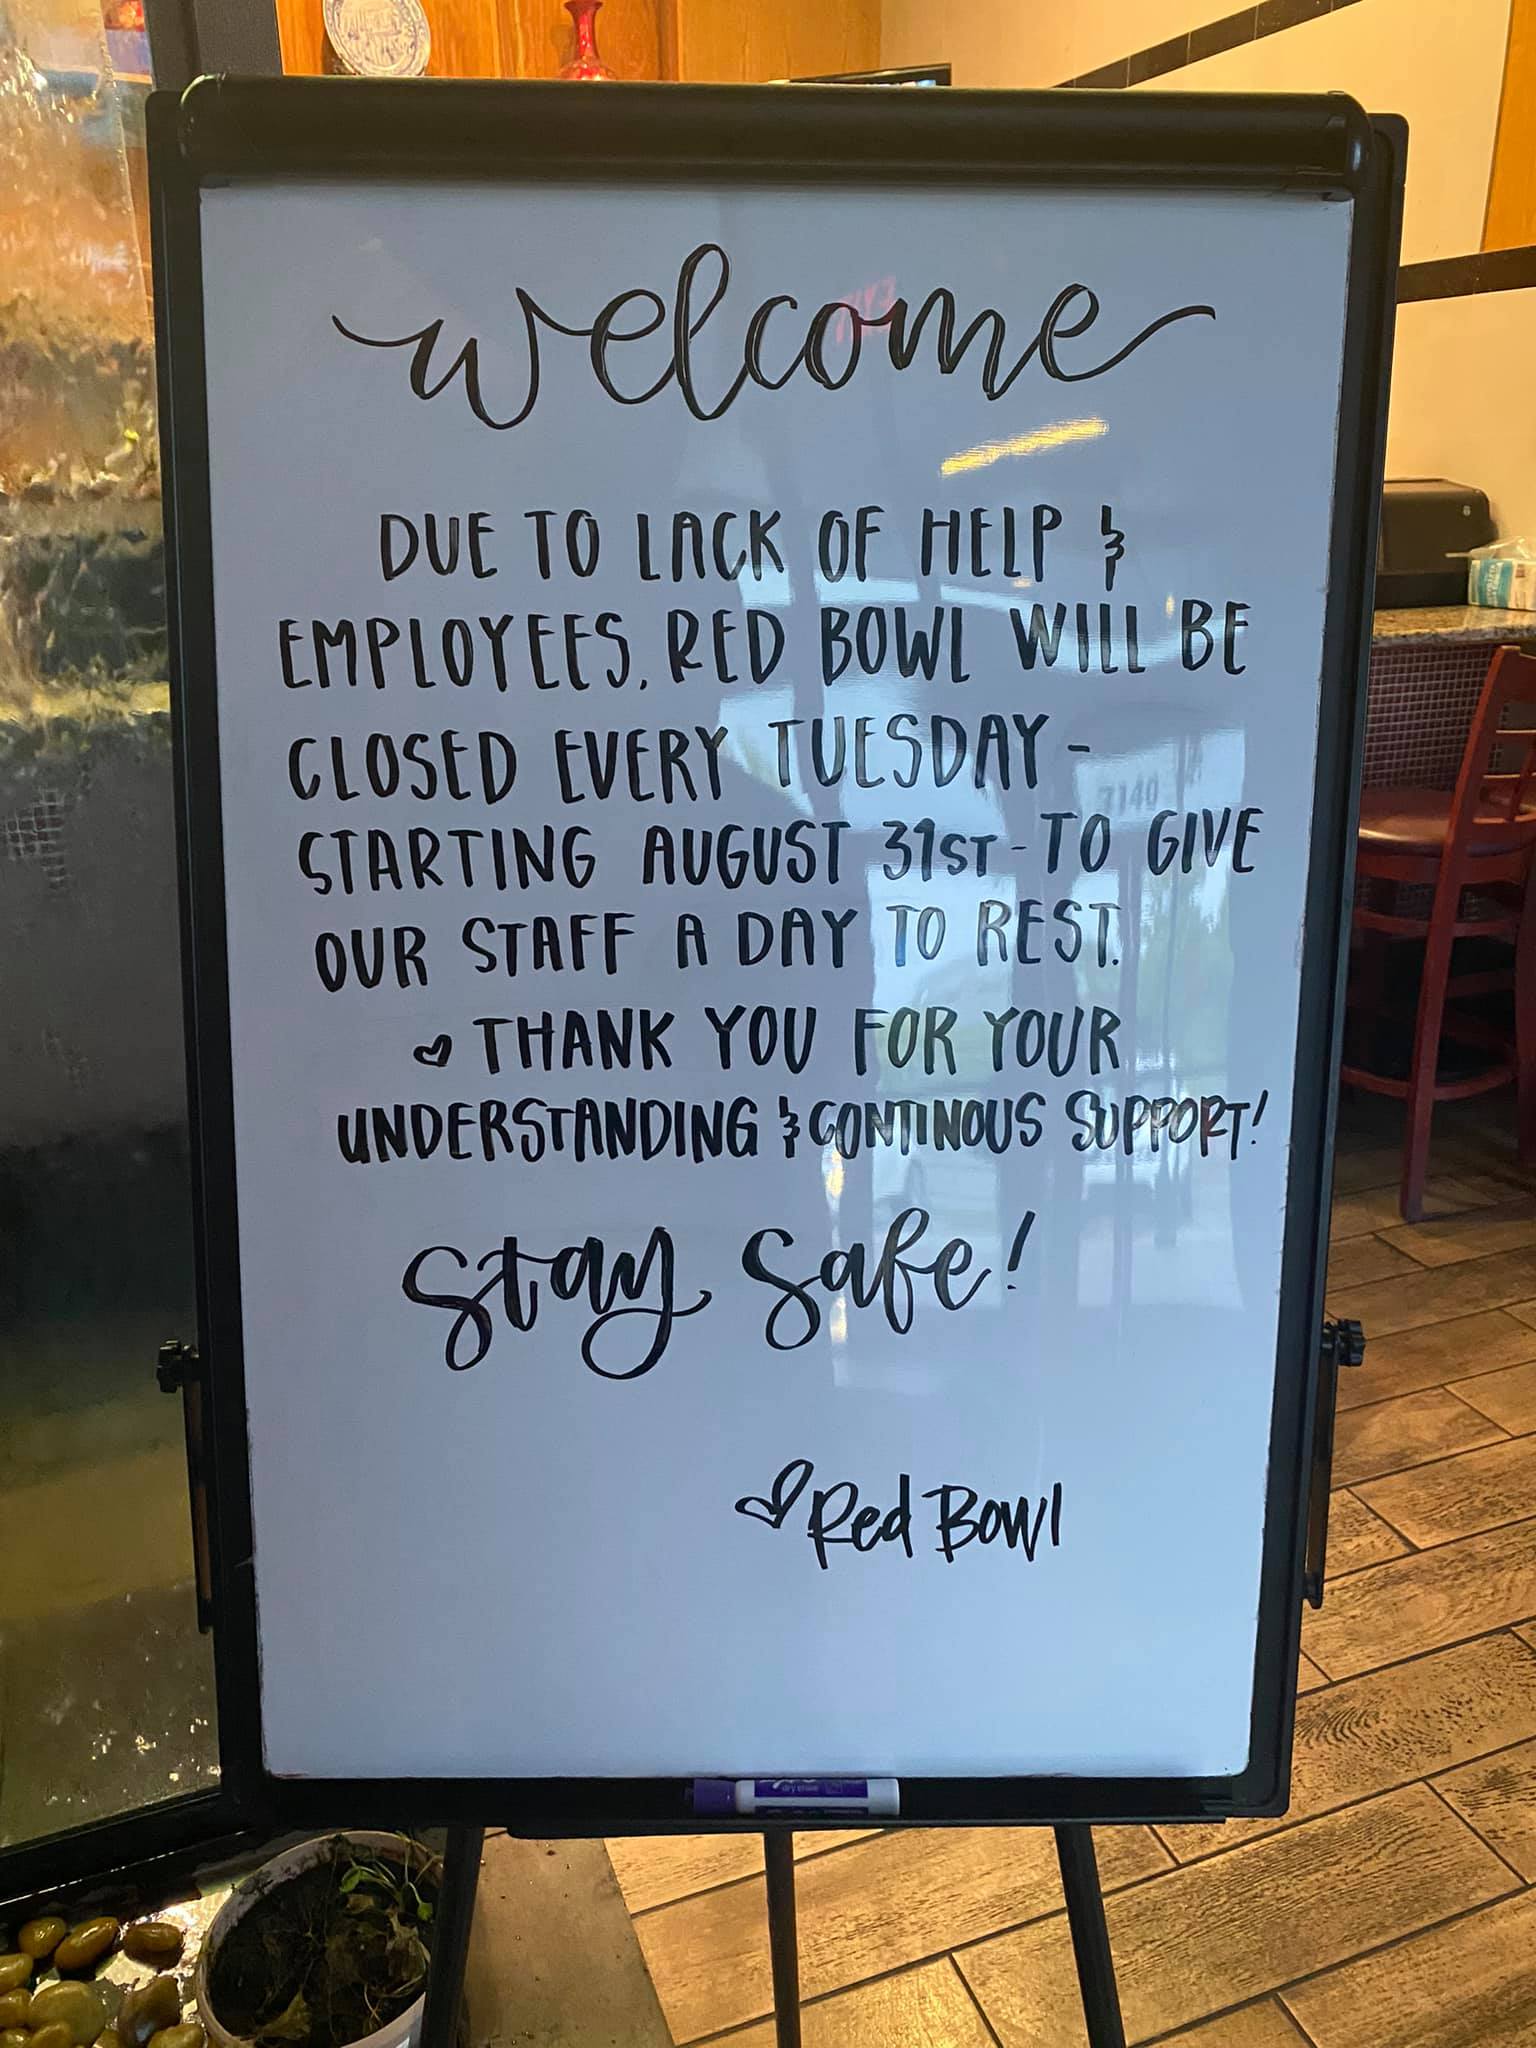 welcome
DUE TO LACK OF HELP &
EMPLOYEES, RED BOWL WILL BE
CLOSED EVERY TUESDAY -
STARTING AUGUST 31ST - TO GIVE
OUR STAFF A DAY TO REST.
♥ THANK YOU FOR YOUR
UNDERSTANDING & CONTINOUS SUPPORT!
stay safe!
♥ Red Bowl
7140
dry erase